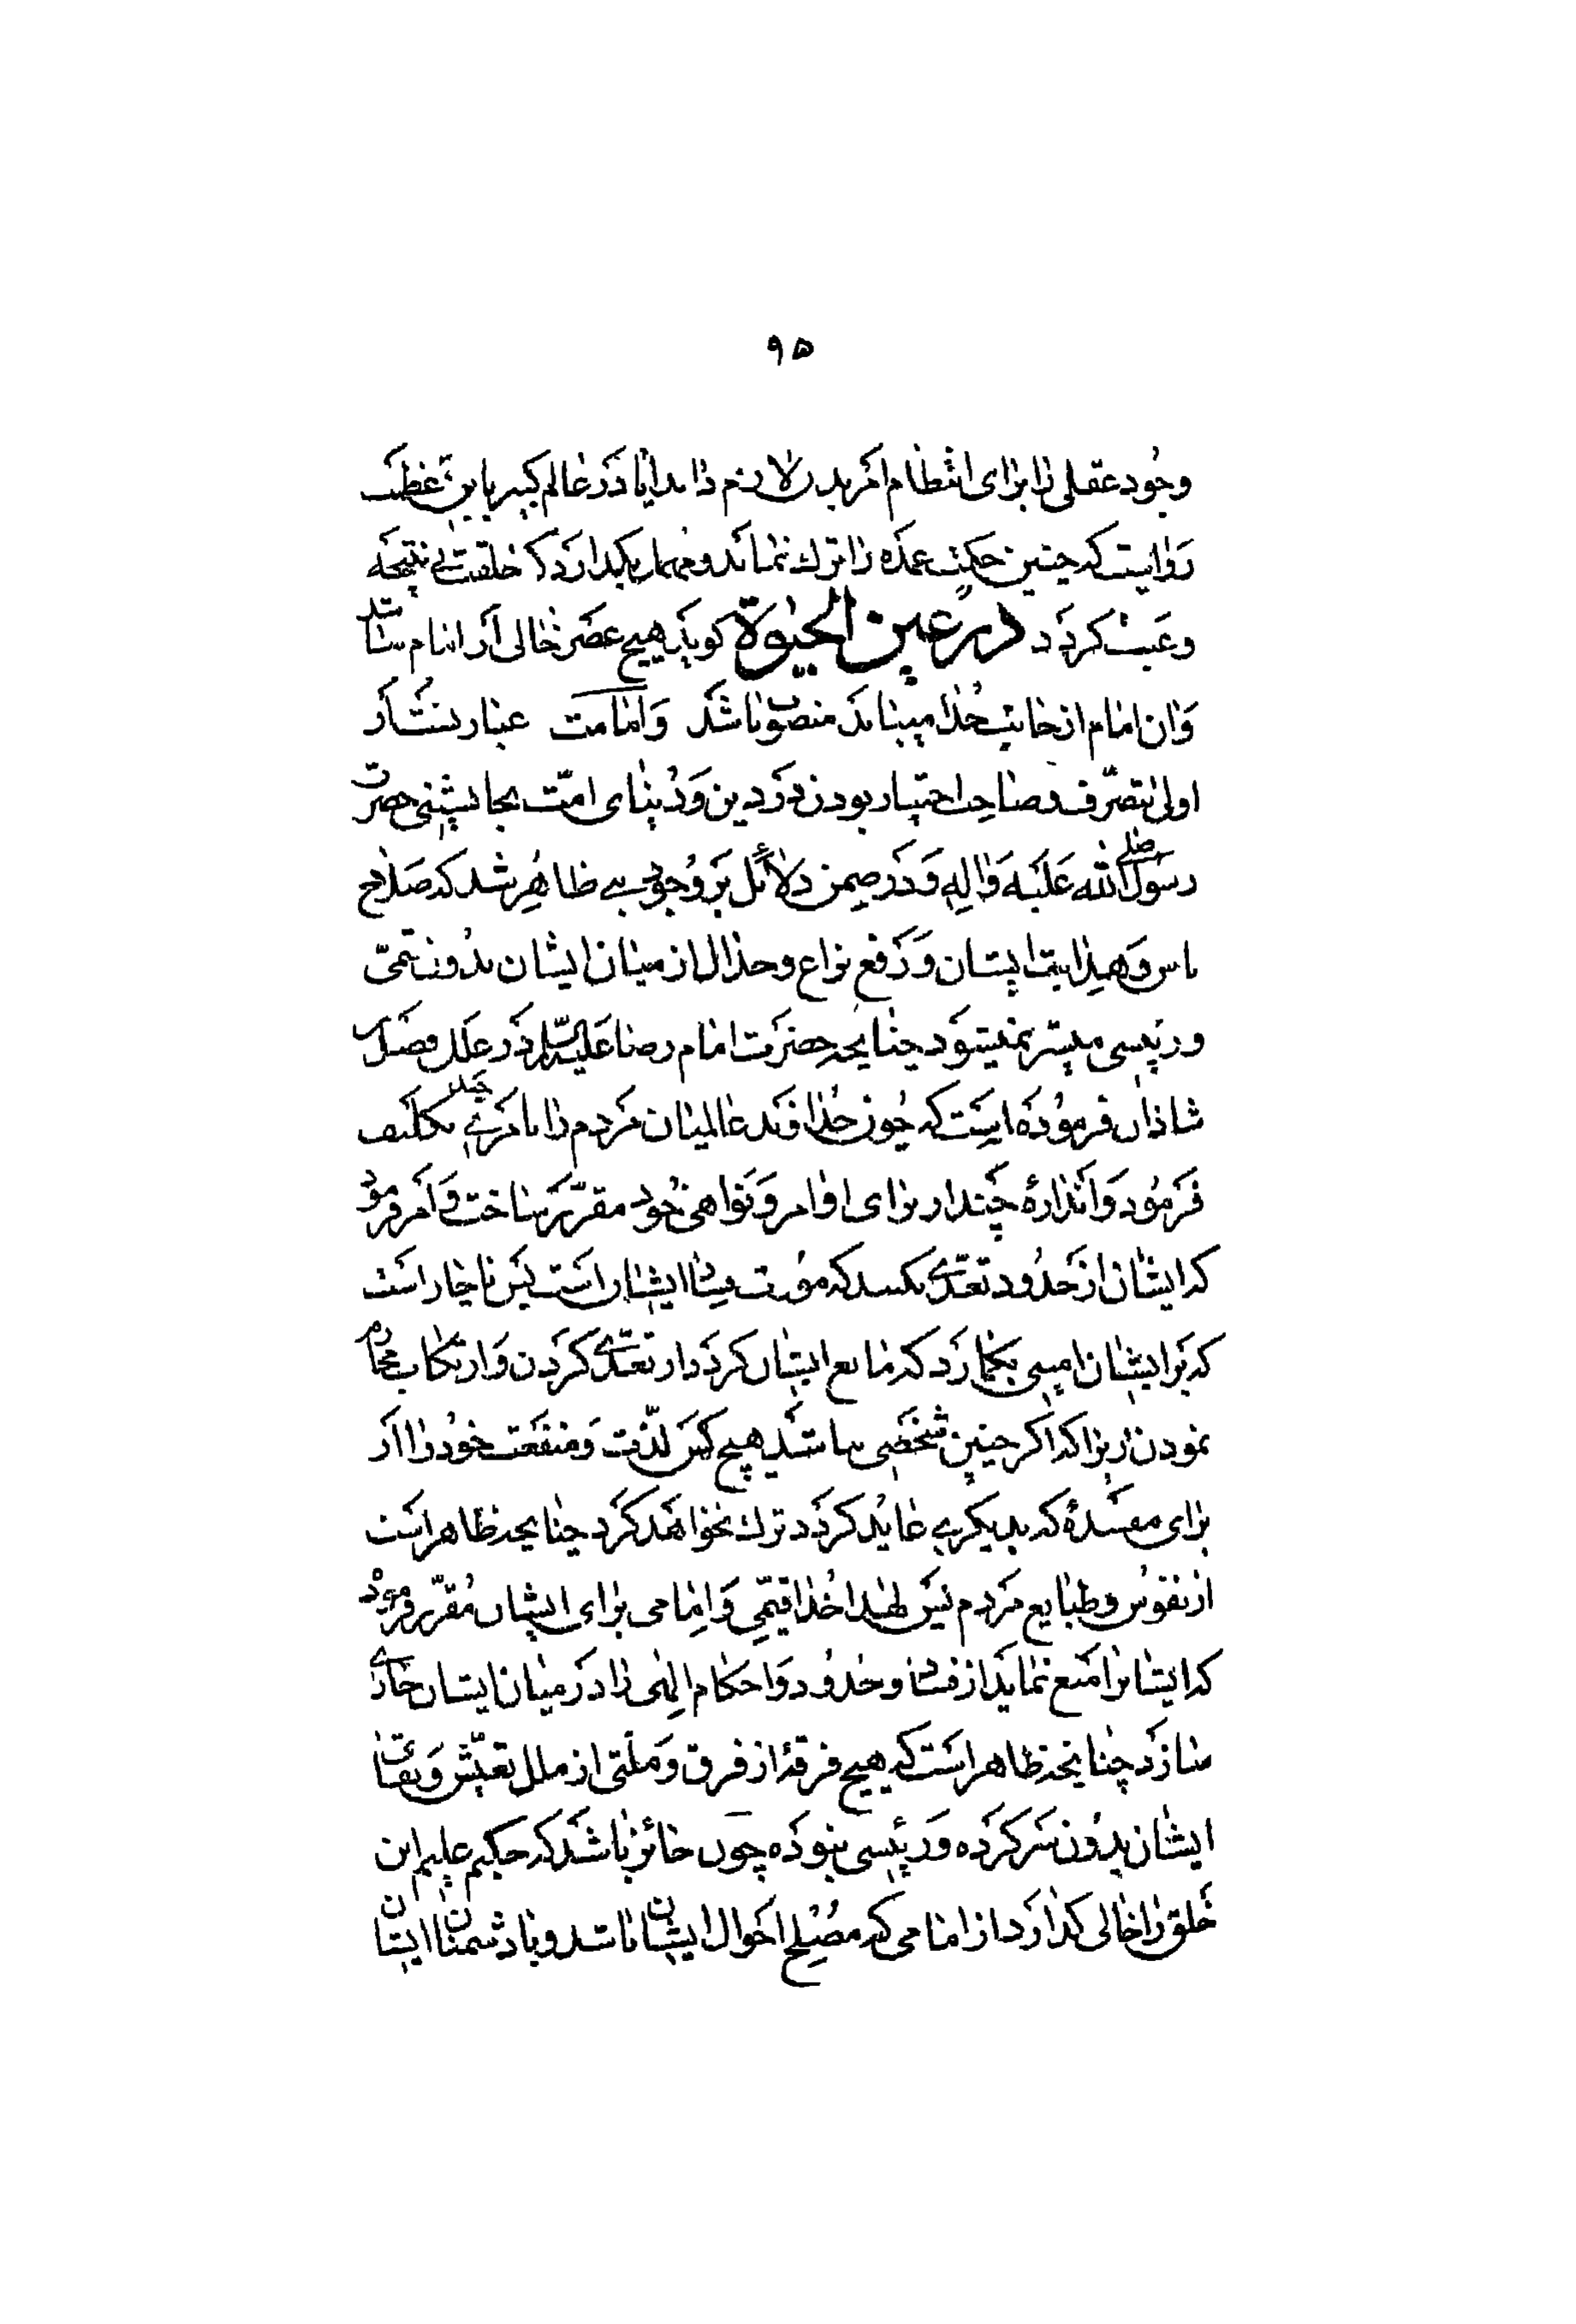 ۹۵
وجود عقلی را برای انتظام امر بدن لازم داند ایا در عالم کبیر باین عظمت
رواست که چنین حکمت عمده را ترك نماید و مهمل بگذارد که خلقت بی نتیجه
و عبث کردد در عین الحیوة کوید هیچ عصر خالی از امام نباشد
و ان امام از جانب خدا میباید منصوب باشد و امامت عبارتست از
اولی بتصرف و صاحب اختیار بودن در دین و دنیای امت بجانشینی حضرت
رسول صلی الله علیه و اله و در ضمن دلائل بر وجوب ظاهر شد که صلاح
ناس و هدایت ایشان و رفع نزاع و جدال از میان ایشان بدون قیمی
و رئیسی میسر نمیشود چنانچه حضرت امام رضا علیه السلم در علل فضل
شاذان فرموده است که چون خداوند عالمیان مردم را بامری چند تکلیف
فرمود و اندازهٔ چند از برای اوامر و نواهی خود مقرر ساخت و امر فرمود
که ایشان از حدود تعدی نکنند که مورث فساد ایشان است پس ناچار است
که بر ایشان امینی بگمارد که مانع ایشان کردد از تعدی کردن و ارتکاب محارم
نمودن زیرا که اکر چنین شخصی نباشد هیچ کس لذت و منفعت خود را از
برای مفسدهٔ که بدیکری عاید کردد ترك نخواهد کرد چنانچه ظاهر است
از نفوس و طبایع مردم پس لهذا خدا قیمی و امامی برای ایشان مقرر فرمود
که ایشانرا منع نماید از فساد و حدود و احکام الهی را در میان ایشان جاری
سازد چنانچه ظاهر است که هیچ فرقهٔ از فرق و ملتی از ملل تعیش و بقای
ایشان بدون سرکرده و رئیسی نبوده چون جائز باشد که حکیم علیم این
خلق را خالی کذارد از امامی که مصلح احوال ایشان باشد و با دشمنان ایشان